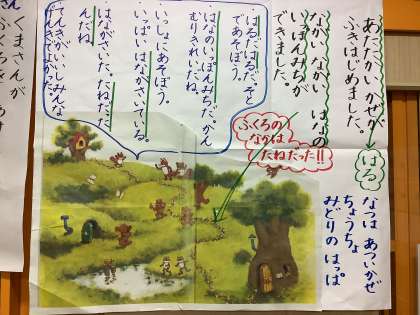 あたたかい かぜが
ふきはじめました。
はる
なつは あついかぜ
ちょうちょ
みどりの はっぱ
ながい ながい はなの
いっぽんみちが
できました。
ふくろの
なかは
たねだった!!
はるだはるだ。そと
であそぼう。
はなのいっぽんみちだ。かん
・いっしょにあそぼう。
いっぱいはなさいている。
・はながさいた。たねだった
んだね。
てんきがいいしみんな
くまさんが
ふくろを